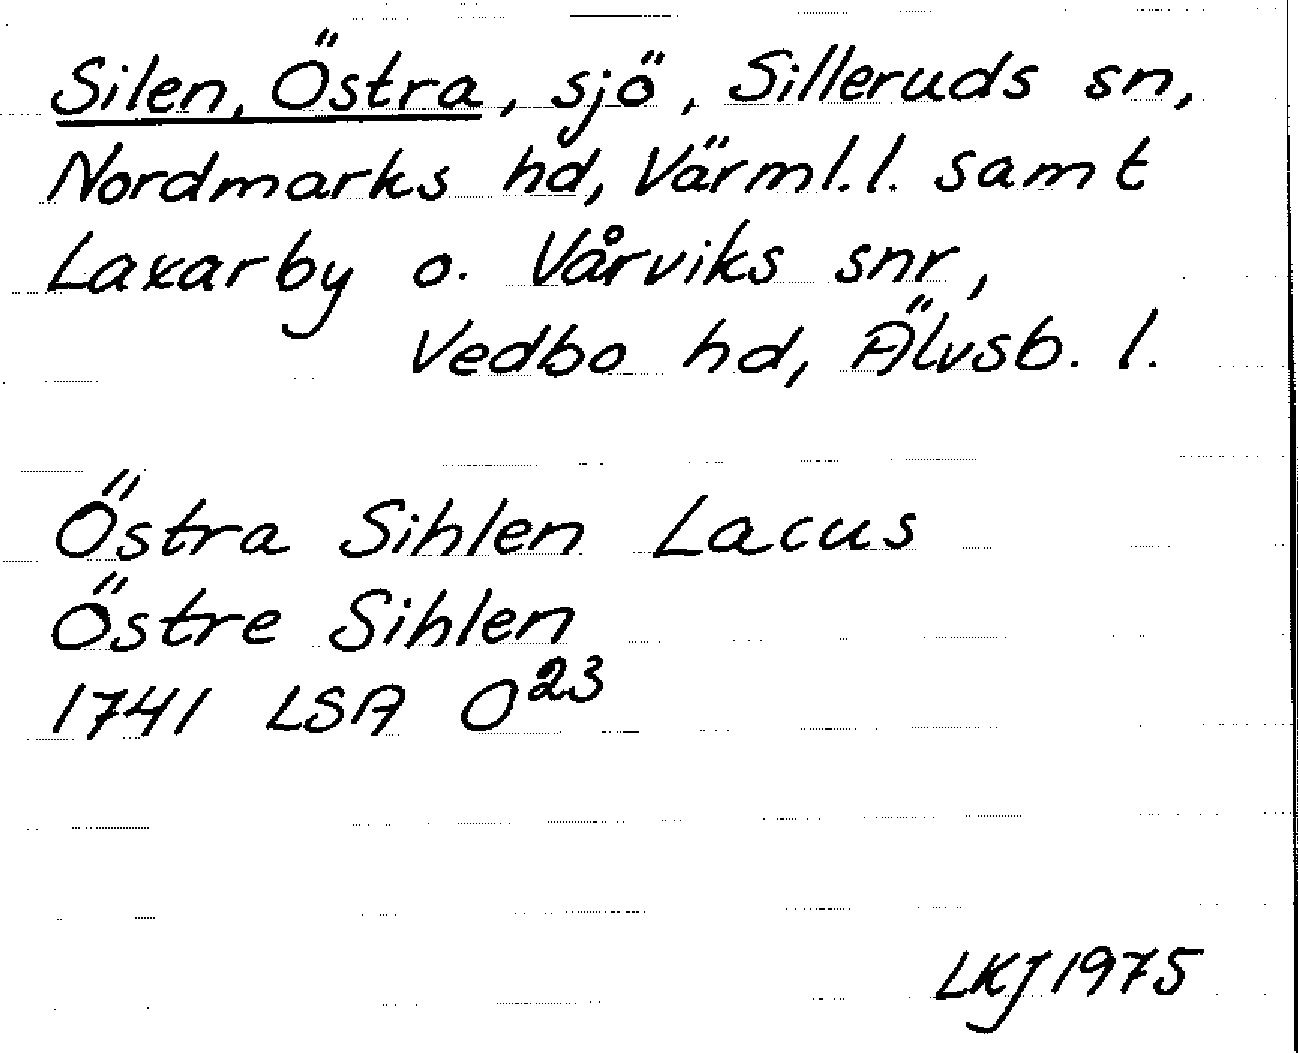 Silen, Östra, sjö, Silleruds sn,
Nordmarks hd, Värml. l. samt
Laxarby o. Vårviks snr,
Vedbo hd, Älvsb. l.
Östra Sihlen Lacus
Östre Sihlen
1741 LSA O²³
LKJ 1975